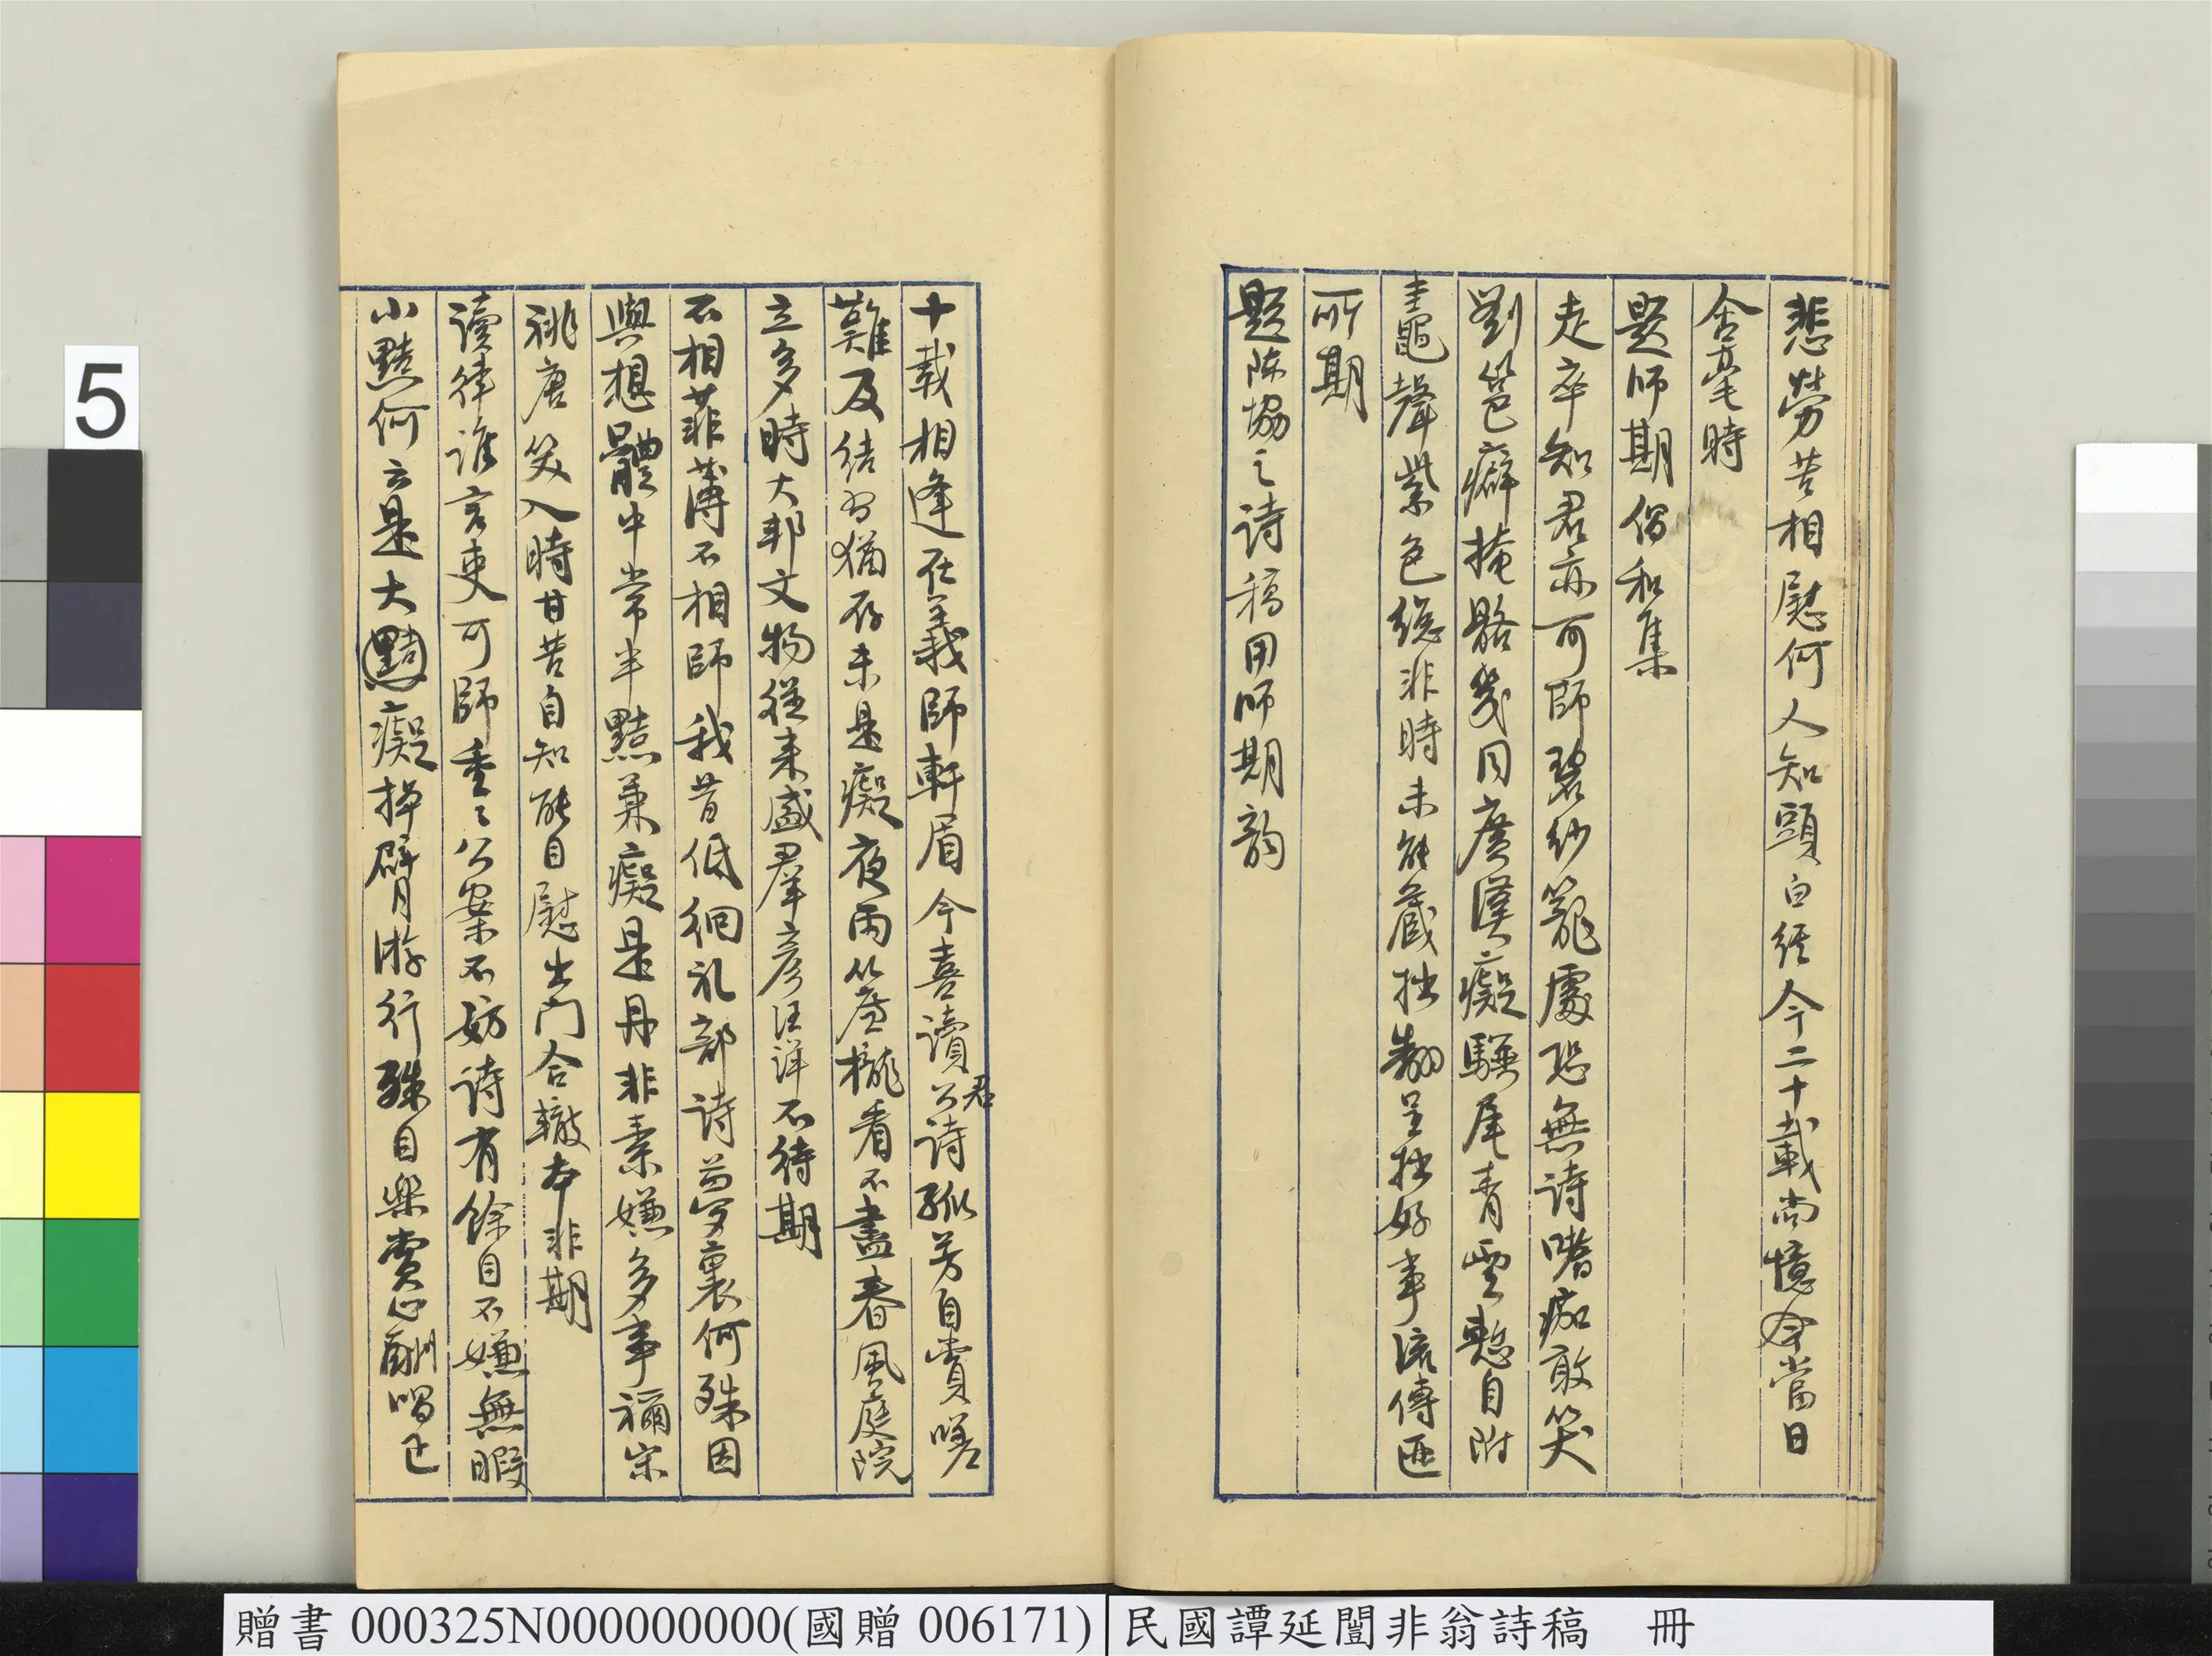 悲勞苦相慰何人知頭白經今二十載尚憶今當日
含毫時
題師期倡和集
走卒知君亦可師碧紗籠處恐無詩嗜痂敢笑
劉邕癖掩骼幾同廣漢癡驥尾青雲慙自附
蛙黽聲紫色總非時未能藏拙翻呈拙好事流傳匪
所期
題陳協之詩稿用師期韵
十載相逢在義師軒眉今喜讀公詩孤芳自賞嗟
君
難及結習猶存未是癡夜雨簾櫳看不盡春風庭院
立多時大邦文物從來盛羣彥汪洋不待期
不相菲薄不相師我昔低徊禮部詩夢裏何殊因
與想體中常半黠兼癡是丹非素嫌多事禰宋
祧唐笑入時甘苦自知能自慰出門合轍本非期
讀律誰言吏可師重〻公案不妨詩有餘自不嫌無暇
小黠何云是大黠癡掉臂游行殊自樂賞心酬唱已
5
贈書 000325N000000000(國贈 006171)
民國譚延闓非翁詩稿 冊